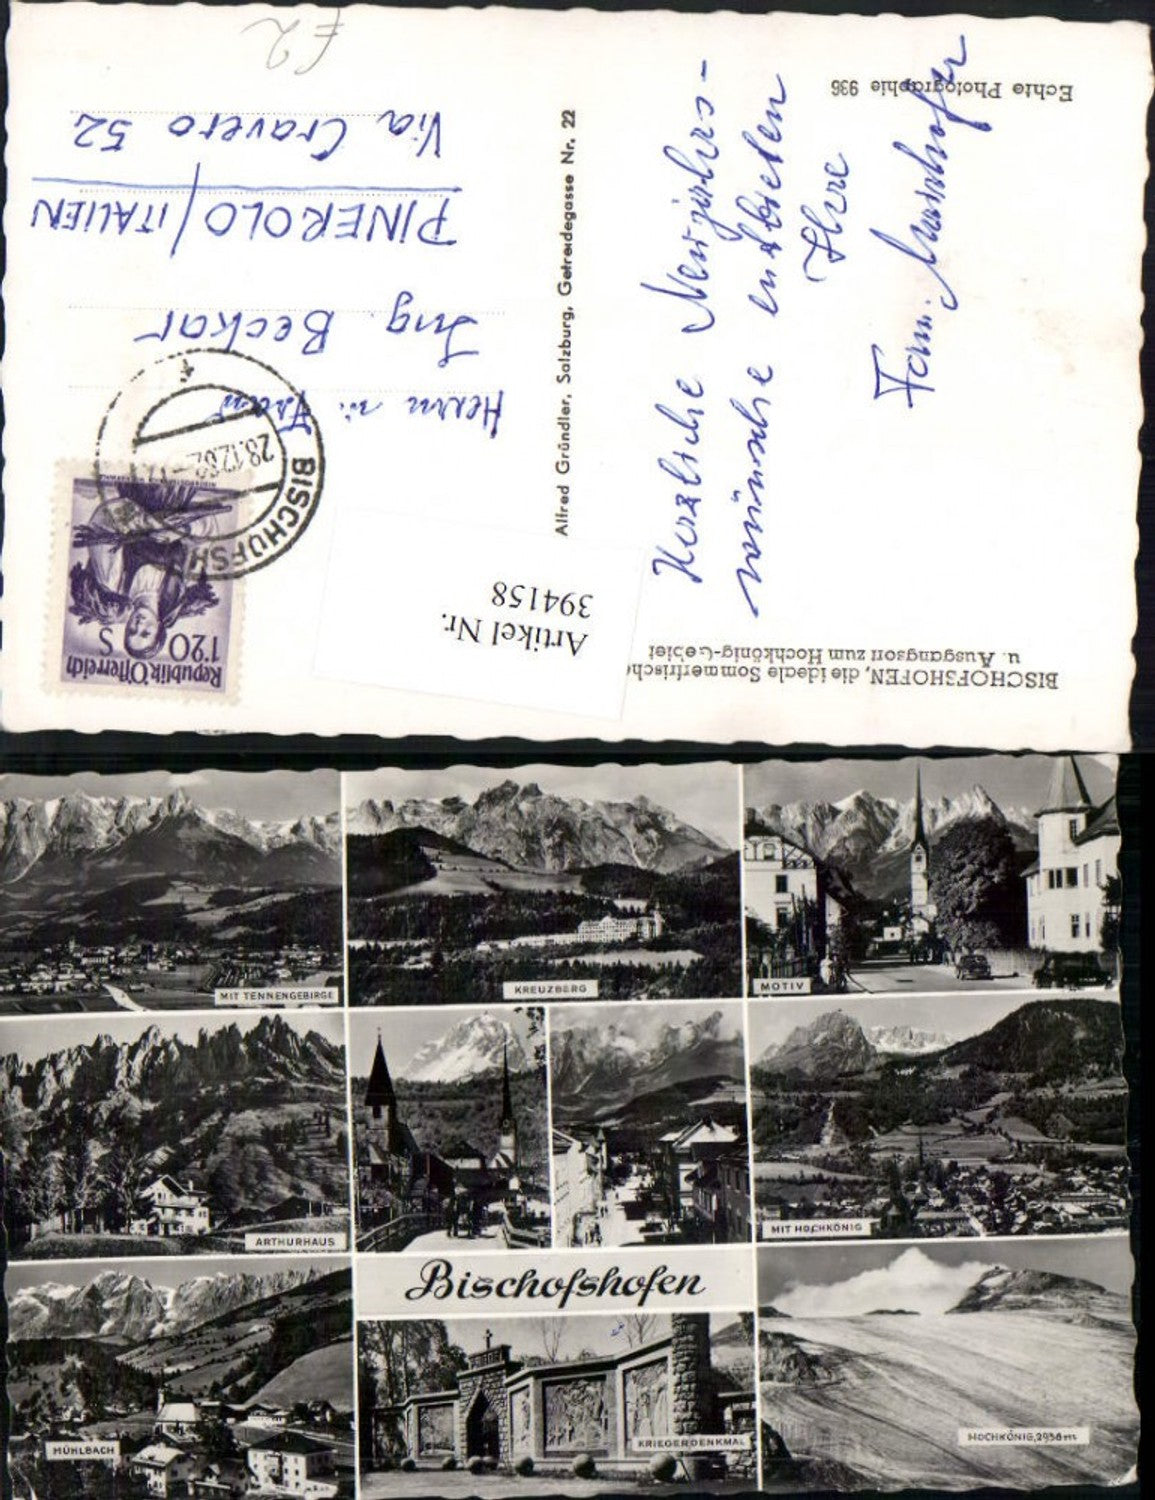 BISCHOFSHOFEN, die ideale Sommerfrische
u. Ausgangsort zum Hochkönig-Gebiet
Herzliche Neujahrs-
wünsche entbieten
Ihre
Fam.
Echte Photographie 936
Alfred Gründler, Salzburg, Getreidegasse Nr. 22
Artikel Nr.
394158
Republik Österreich
1'20
S
BISCHOFSH
28.12.62
Herrn u. Frau
Ing. Beckar
PINEROLO/ITALIEN
Via Cravero 52
MIT TENNENGEBIRGE
KREUZBERG
MOTIV
ARTHURHAUS
MIT HOCHKÖNIG
Bischofshofen
MÜHLBACH
KRIEGERDENKMAL
HOCHKÖNIG, 2938m